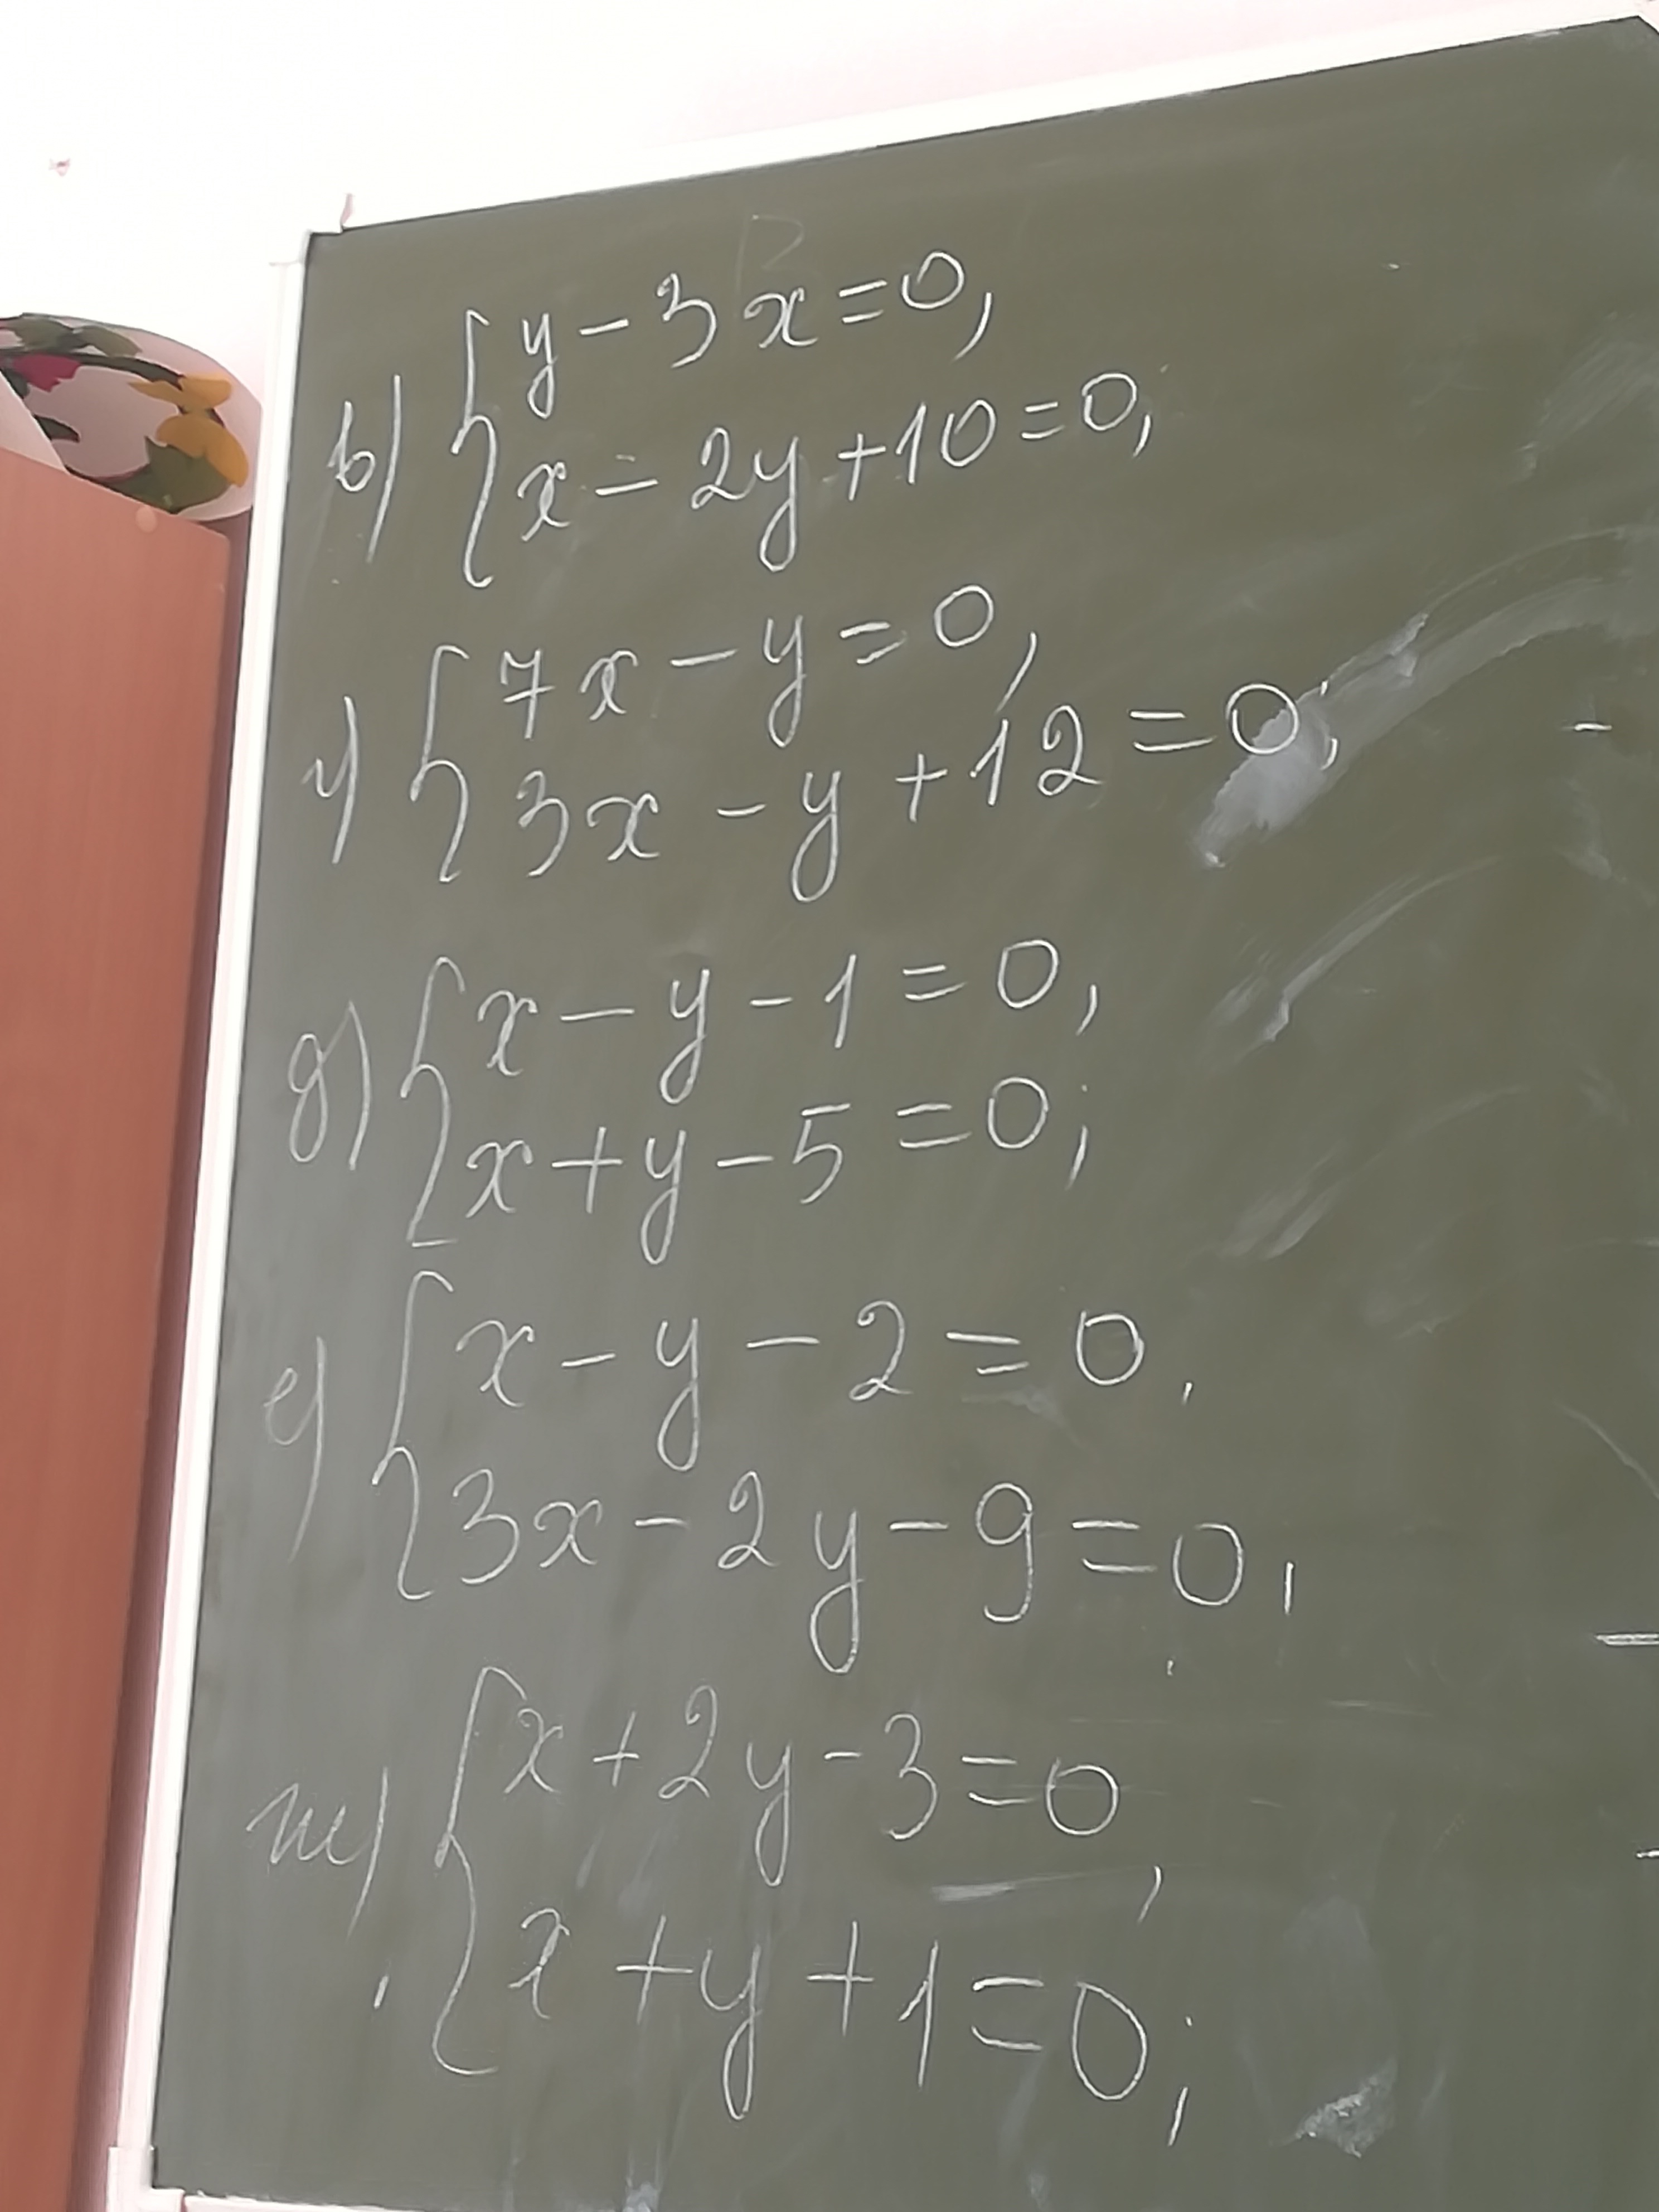 в) { y - 3x = 0,
x - 2y + 10 = 0,
г) { 7x - y = 0,
3x - y + 12 = 0;
д) { x - y - 1 = 0,
x + y - 5 = 0;
е) { x - y - 2 = 0,
3x - 2y - 9 = 0,
ж) { x + 2y - 3 = 0,
x + y + 1 = 0;